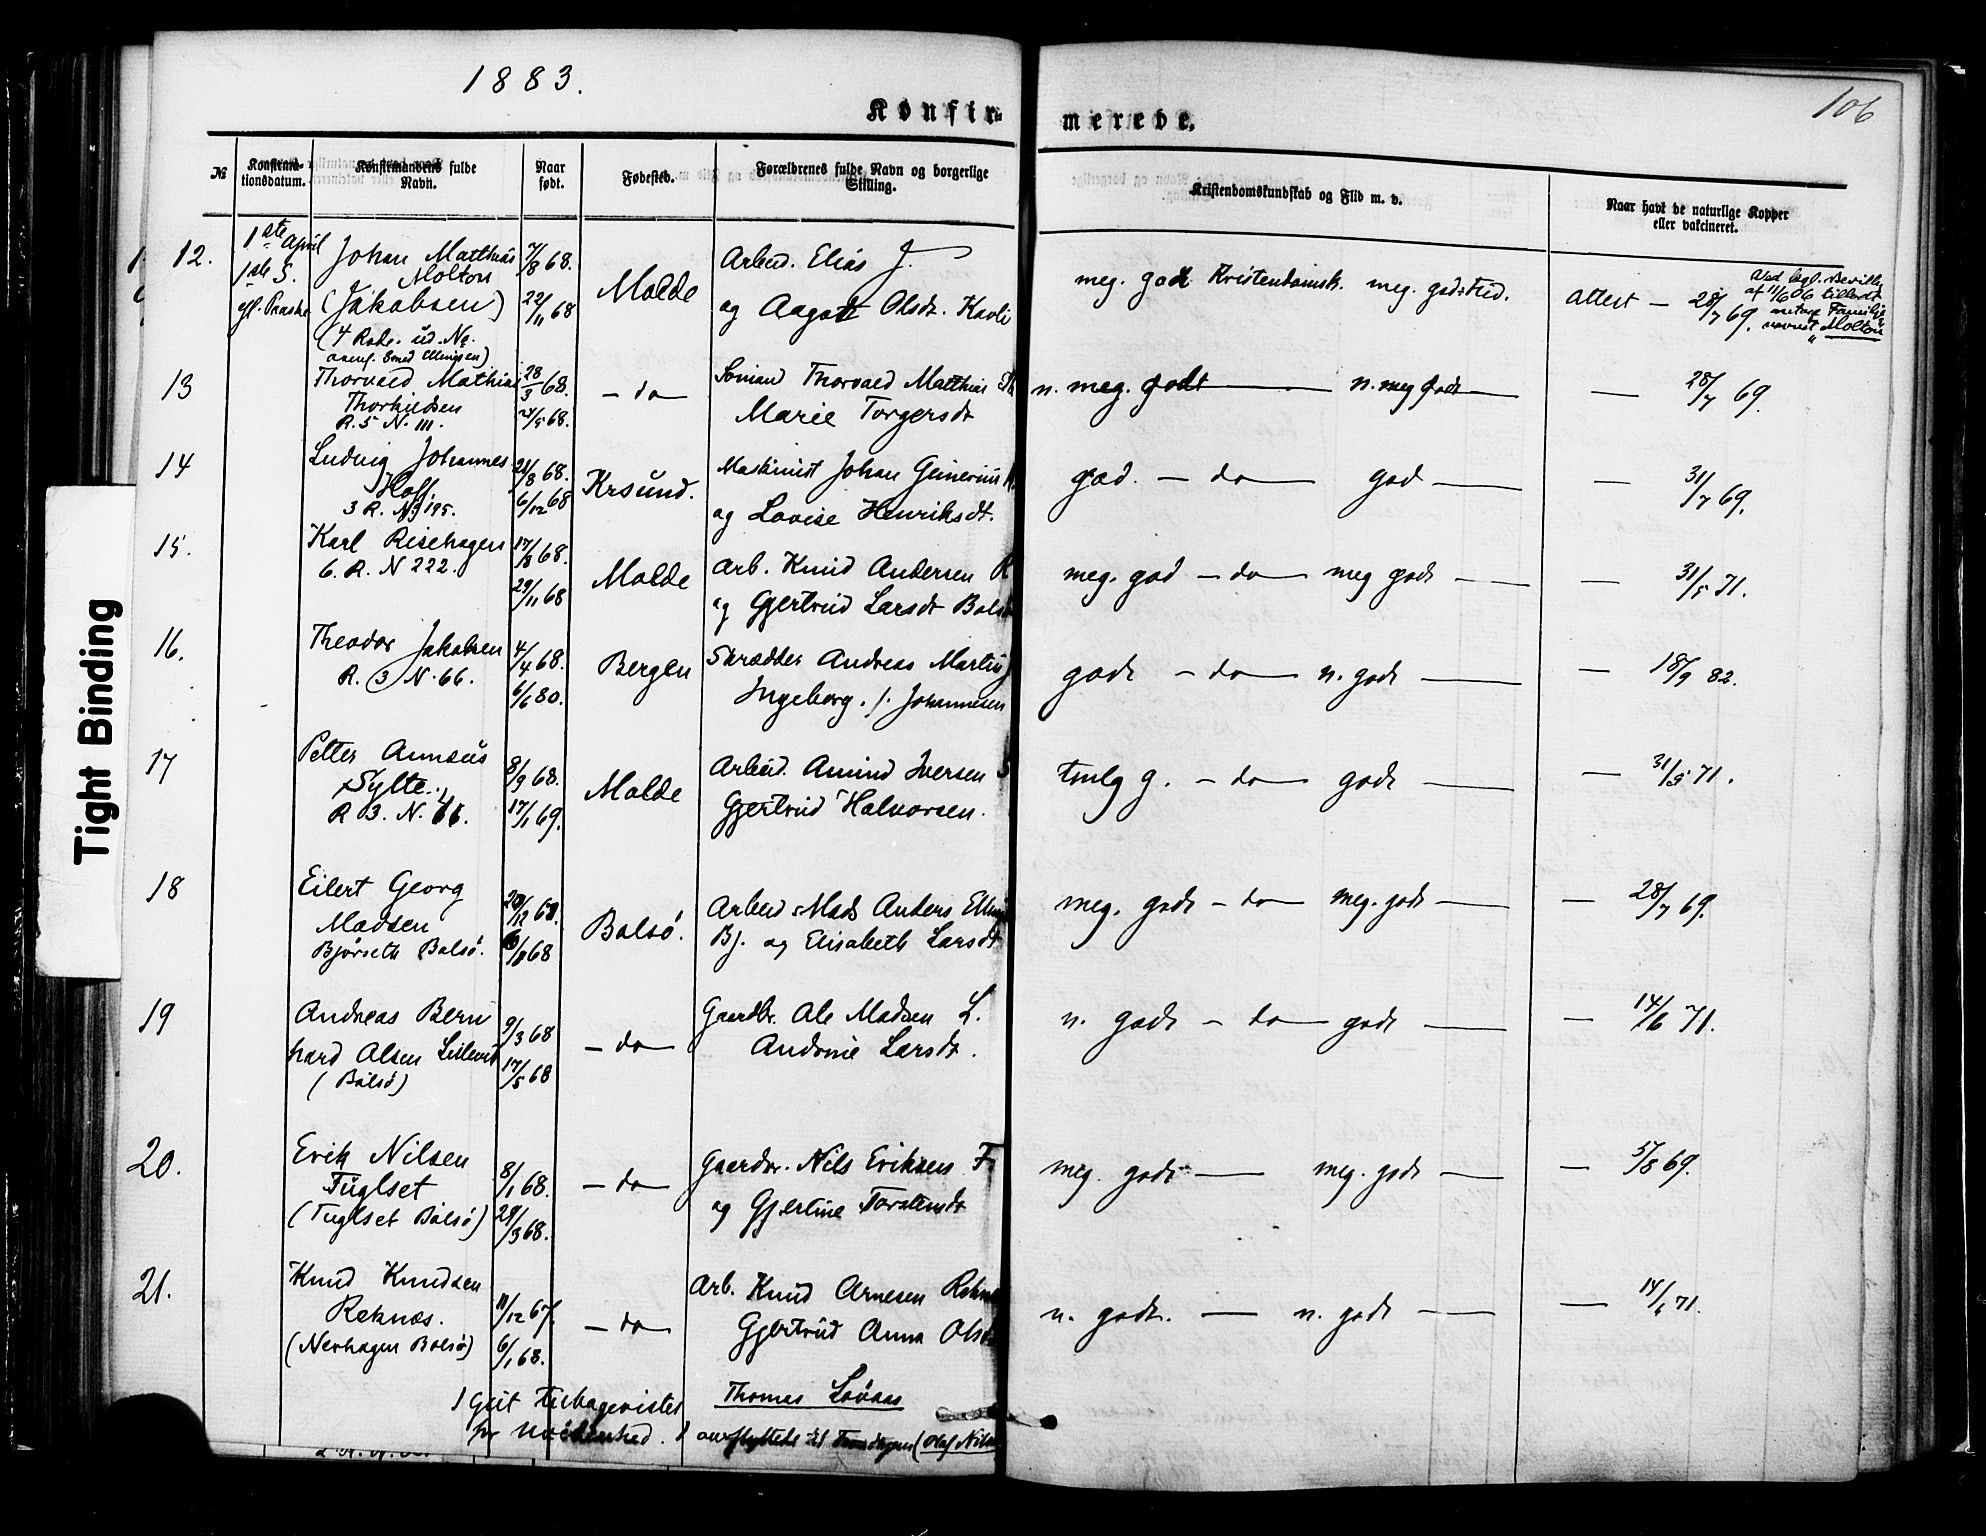 1883.
106
Konfir-
merede.
№
Konfirma-
tionsdatum.
Konfirmandens fulde
Navn.
Naar
født.
Fødested.
Forældrenes fulde Navn og borgerlige
Stilling.
Kristendomskundskab og Flid m. v.
Naar havt de naturlige Kopper
eller vakcineret.
12.
1ste April
1ste S.
Paaske
Johan Matthias
Molton
(Jakobsen)
7/8 68.
22/11 68
Molde
Arbeid. Elias J.
og Aagott Olsdt. Kavli
meg. god Kristendomsk. meg. god Flid.
Attest — 28/7 69.
af 11/6 06
Molton
13
Thorvald Mathias
Thorkildsen
R. 5 N. 111.
28/3 68.
24/5 68.
— do —
Sömand Thorvald Matthias Th
Marie Torgersdt
n. meg. godt — n. meg godt —
— 28/7 69.
14
Ludvig Johannes
Hoff.
3 R. N. 195.
21/8 68.
6/12 68
Krsund.
Maskinist Johan
og Lovise Henriksdt.
god. — do — god —
— 31/7 69.
15.
Karl Risehagen
6. R. N 222.
17/8 68.
29/11 68
Molde
Arb. Knud Andersen R
og Gjertrud Larsdt Bols
meg. god — do — meg godt —
— 31/5 71.
16.
Theodor Jakobsen
R. 3 N. 66.
4/4 68.
6/6 80.
Bergen
Skrædder Andreas Martin J
Ingeborg. f. Johannesen
godt — do — n. godt —
— 18/9 82.
17
Petter
Sylte.
R 3. N. 66.
8/9 68.
17/1 69.
Molde
Arbeid. Amund Iversen S
Gjertrud Halvorsen.
tmlg g. — do — godt —
— 31/5 71.
18
Eilert Georg
Madsen
Bjørseth Bolsö.
Bolsö.
Arbeid Mads Anders
Bj. og Elisabeth Larsdt
meg. godt — do — meg. godt —
— 28/7 69.
19
Andreas Bern
hard Olsen
(Bolsö)
9/3 68
17/5 68
— do —
Gaardbr. Ole Madsen L.
Larsdt.
n. godt — do — godt —
— 14/6 71.
20.
Erik Nilsen
Fuglset
(Fuglset Bolsö)
8/1 68.
29/3 68.
— do —
Gaardbr. Nils Eriksen F.
og Gjertine Torstensdt
meg. godt — meg. godt —
21.
Knud Knudsen
Reknæs.
(Nerhagen Bolsö)
11/12 67.
6/1 68.
— do —
Arb. Knud Arnesen Rekn
Gjertrud Anna Olsdt
n. godt. — n. godt —
— 14/6 71.
1 Gut tilbagevistes
Thomas Løvaas
(Olaf Nils
Tight Binding